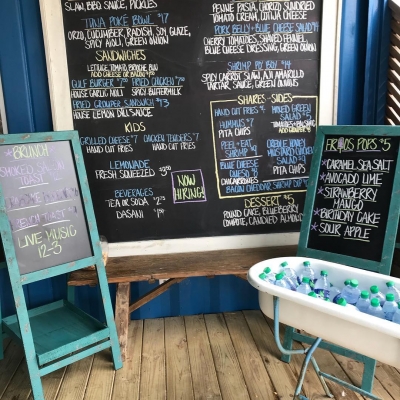 SLAW, BBQ SAUCE, PICKLES
TUNA POKE BOWL $17
ORZO, CUCUMBER, RADISH, SOY GLAZE,
SPICY AIOLI, GREEN ONION
SANDWICHES
LETTUCE, TOMATO, BRIOCHE BUN
ADD CHEESE OR BACON
GULF BURGER FRIED CHICKEN
HOUSE GARLIC AIOLI SPICY BUTTERMILK
FRIED GROUPER SANDWICH $13
HOUSE LEMON DILL SAUCE
KIDS
GRILLED CHEESE $7 CHICKEN TENDERS $7
HAND CUT FRIES HAND CUT FRIES
LEMONADE
FRESH SQUEEZED $3.00
BEVERAGES
TEA OR SODA
DASANI
NOW
HIRING!
PENNE PASTA, CHORIZO, SUNDRIED
TOMATO CREAM, COTIJA CHEESE
PORK BELLY + BLUE CHEESE SALAD
CHERRY TOMATOES, SHAVED FENNEL,
BLUE CHEESE DRESSING, GREEN ONION
SHRIMP PO BOY $14
SPICY CARROT SLAW, AJI AMARILLO
TARTAR SAUCE, GREEN ONIONS
SHARES - SIDES
HAND CUT FRIES
HUMMUS $7
PITA CHIPS
PEEL + EAT
SHRIMP
BLUE CHEESE
QUESO $8
MIXED GREEN
SALAD
PITA CHIPS
CREOLE HONEY
MUSTARD CHICKEN
SALAD
PITA CHIPS
BACON CHEDDAR SHRIMP DIP
DESSERT $5
POUND CAKE, BLUEBERRY
COMPOTE, CANDIED ALMOND
BRUNCH
SMOKED
TOAST
LIVE MUSIC
12-3
FROIDS POPS $5
CARAMEL SEA SALT
AVOCADO LIME
STRAWBERRY
MANGO
BIRTHDAY CAKE
SOUR APPLE